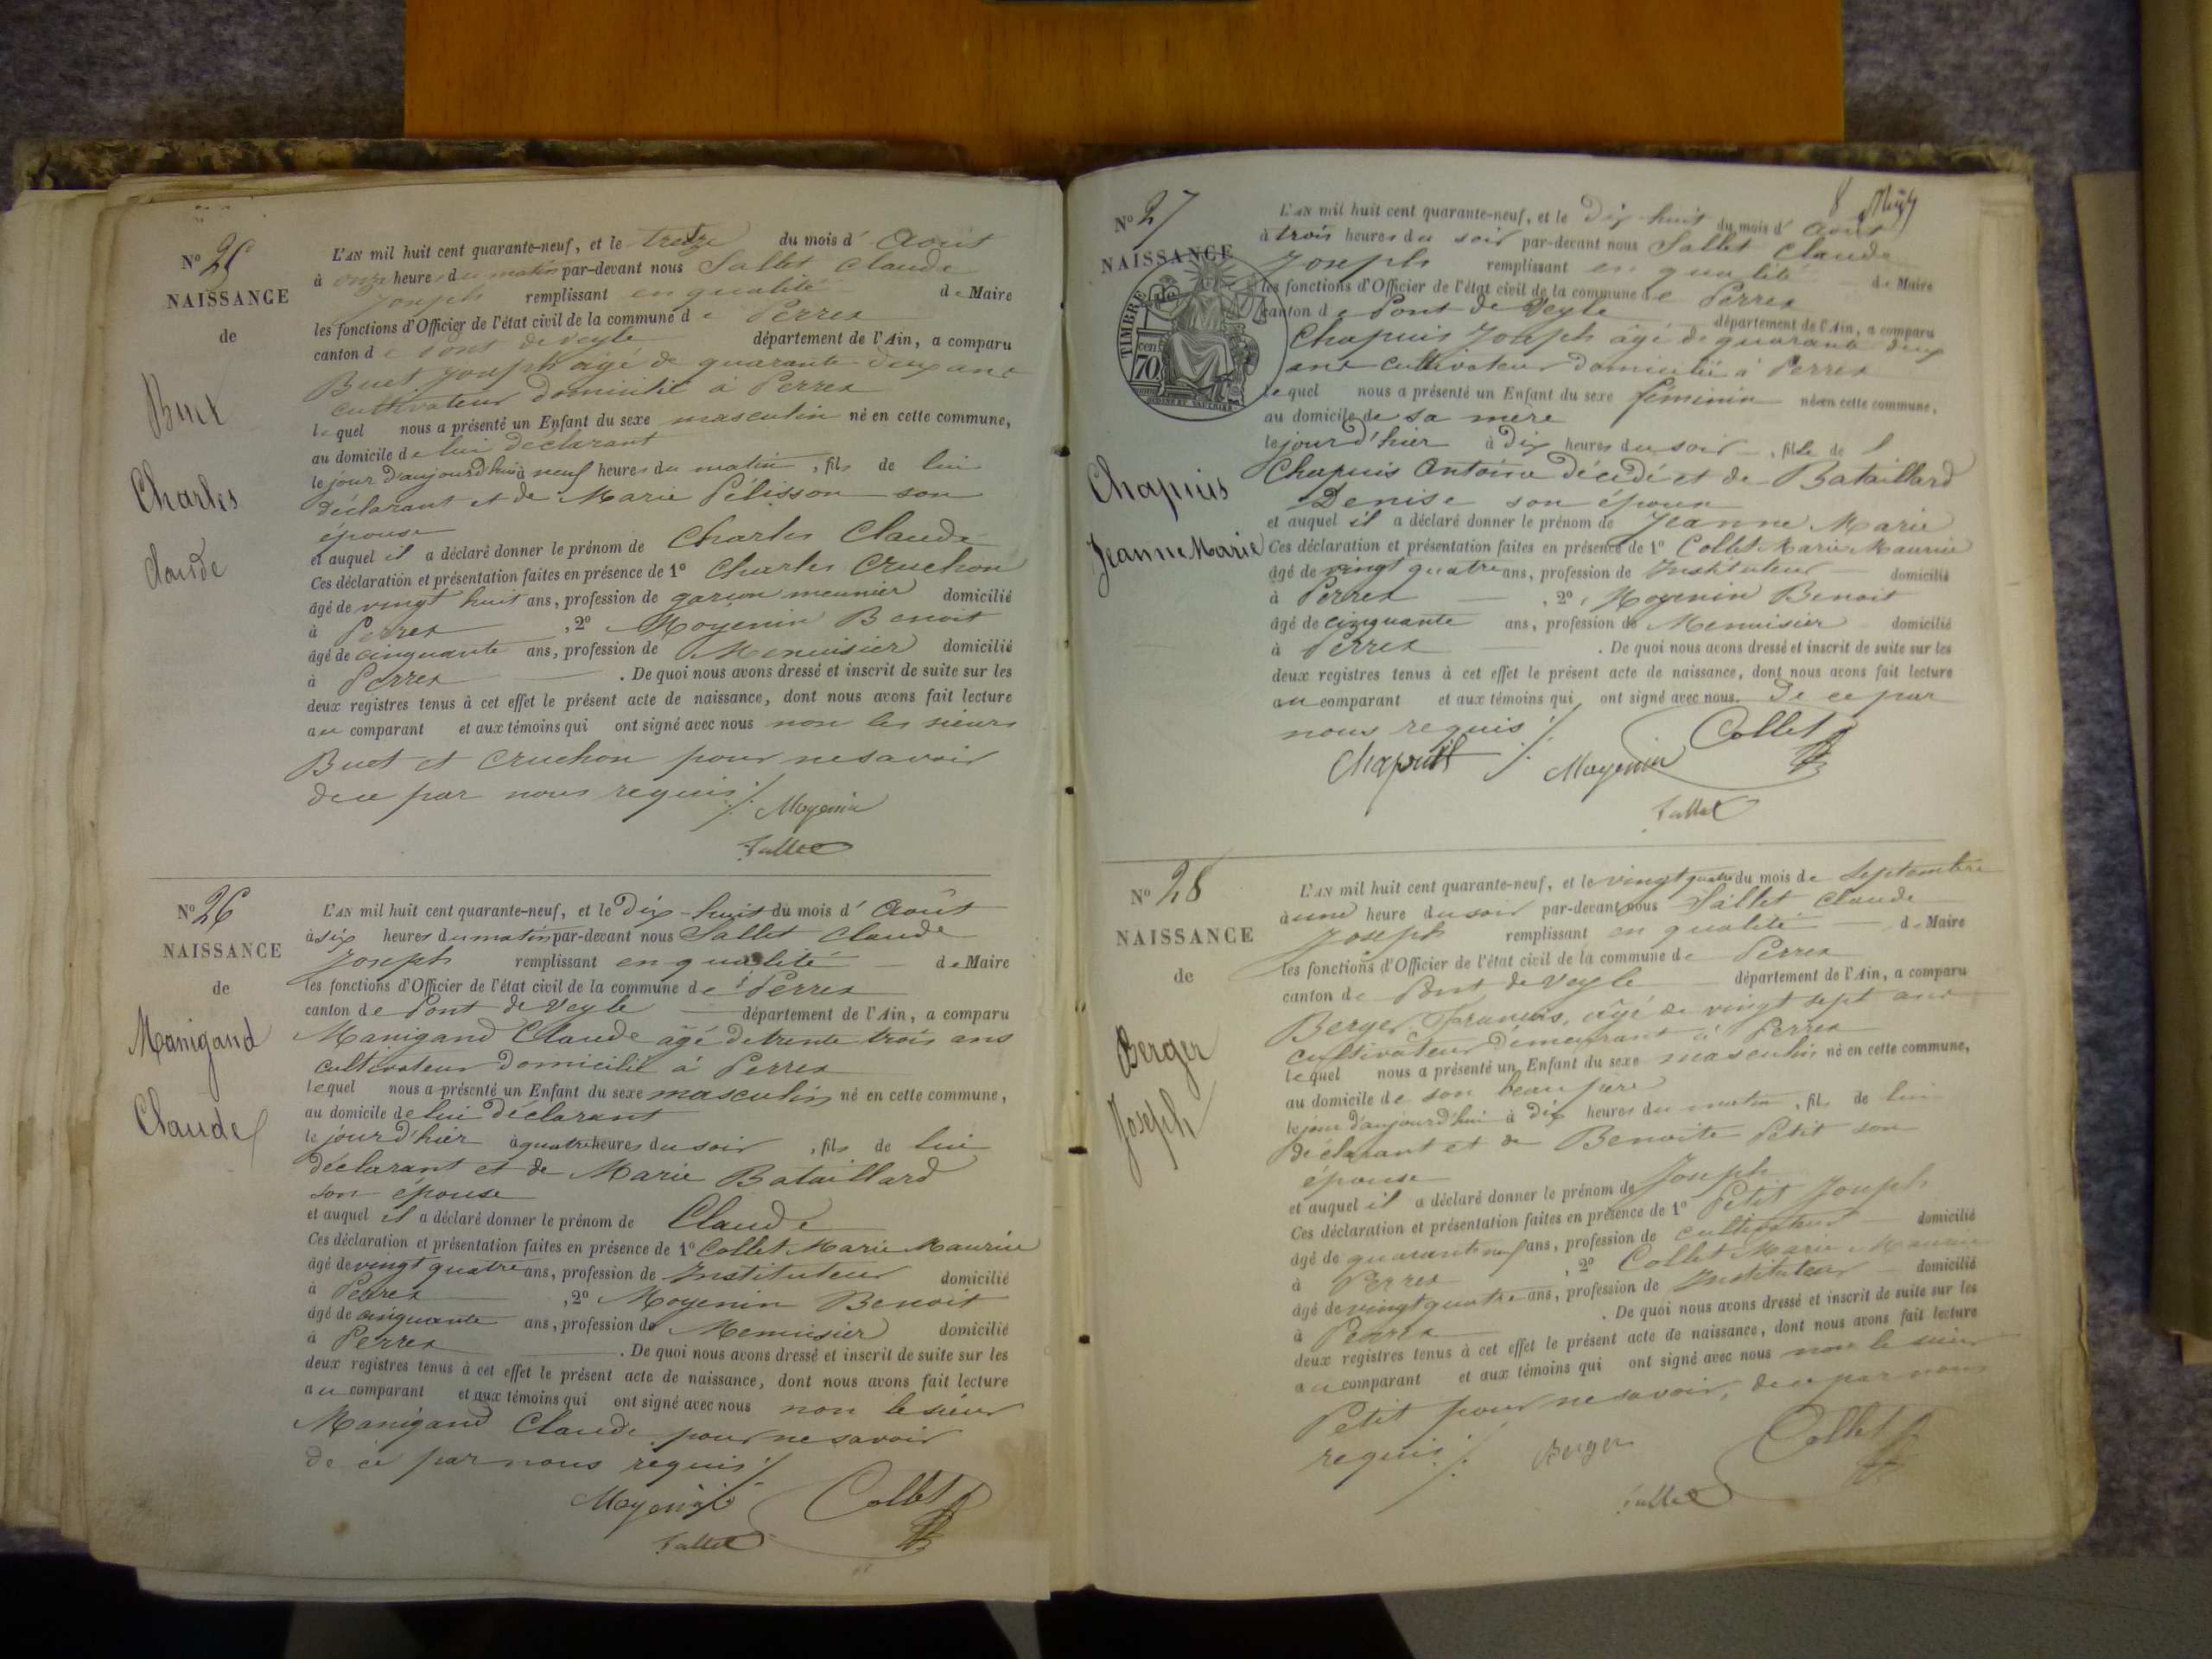 N° 25
NAISSANCE
de
Buet
Charles
Claude
L'AN mil huit cent quarante-neuf, et le treize du mois d'Août
à onze heures du matin par-devant nous Sallet Claude
Joseph remplissant en qualité de Maire
les fonctions d'Officier de l'état civil de la commune de Perrex
canton de Pont de Veyle département de l'Ain, a comparu
Buet Joseph âgé de quarante deux ans
cultivateur domicilié à Perrex
lequel nous a présenté un Enfant du sexe masculin né en cette commune,
au domicile de lui déclarant
le jour d'aujourd'hui à neuf heures du matin, fils de lui
déclarant et de Marie Pélisson son
épouse
et auquel il a déclaré donner le prénom de Charles Claude
Ces déclaration et présentation faites en présence de 1° Charles Cruchon
âgé de vingt huit ans, profession de garçon meunier domicilié
à Perrex , 2° Moyenin Benoit
âgé de cinquante ans, profession de Menuisier domicilié
à Perrex . De quoi nous avons dressé et inscrit de suite sur les
deux registres tenus à cet effet le présent acte de naissance, dont nous avons fait lecture
au comparant et aux témoins qui ont signé avec nous non les sieurs
Buet et Cruchon pour ne savoir
de ce par nous requis ./.
Moyenin
Sallet
N° 26
NAISSANCE
de
Manigand
Claude
L'AN mil huit cent quarante-neuf, et le Dix-huit du mois d'Août
à six heures du matin par-devant nous Sallet Claude
Joseph remplissant en qualité de Maire
les fonctions d'Officier de l'état civil de la commune de Perrex
canton de Pont de Veyle département de l'Ain, a comparu
Manigand Claude âgé de trente trois ans
cultivateur domicilié à Perrex
lequel nous a présenté un Enfant du sexe masculin né en cette commune,
au domicile de lui déclarant
le jour d'hier à quatre heures du soir , fils de lui
déclarant et de Marie Bataillard
son épouse
et auquel il a déclaré donner le prénom de Claude
Ces déclaration et présentation faites en présence de 1° Collet Marie Maurice
âgé de vingt quatre ans, profession de Instituteur domicilié
à Perrex , 2° Moyenin Benoit
âgé de cinquante ans, profession de Menuisier domicilié
à Perrex . De quoi nous avons dressé et inscrit de suite sur les
deux registres tenus à cet effet le présent acte de naissance, dont nous avons fait lecture
au comparant et aux témoins qui ont signé avec nous non le sieur
Manigand Claude pour ne savoir
de ce par nous requis ./.
Moyenin Collet
Sallet
8
N° 27
NAISSANCE
de
TIMBRE
70 cen.
Chapuis
Jeanne Marie
L'AN mil huit cent quarante-neuf, et le Dix-huit du mois d'Août
à trois heures du soir par-devant nous Sallet Claude
Joseph remplissant en qualité de Maire
les fonctions d'Officier de l'état civil de la commune de Perrex
canton de Pont de Veyle département de l'Ain, a comparu
Chapuis Joseph âgé de quarante deux
ans cultivateur domicilié à Perrex
lequel nous a présenté un Enfant du sexe féminin né en cette commune,
au domicile de sa mère
le jour d'hier à Dix heures du soir , fille de
Chapuis Antoine décédé et de Bataillard
Denise son épouse
et auquel il a déclaré donner le prénom de Jeanne Marie
Ces déclaration et présentation faites en présence de 1° Collet Marie Maurice
âgé de vingt quatre ans, profession de Instituteur domicilié
à Perrex , 2° Moyenin Benoit
âgé de cinquante ans, profession de Menuisier domicilié
à Perrex . De quoi nous avons dressé et inscrit de suite sur les
deux registres tenus à cet effet le présent acte de naissance, dont nous avons fait lecture
au comparant et aux témoins qui ont signé avec nous. De ce par
nous requis ./.
Chapuis Moyenin Collet
Sallet
N° 28
NAISSANCE
de
Berger
Joseph
L'AN mil huit cent quarante-neuf, et le vingt quatre du mois de Septembre
à une heure du soir par-devant nous Sallet Claude
Joseph remplissant en qualité de Maire
les fonctions d'Officier de l'état civil de la commune de Perrex
canton de Pont de Veyle département de l'Ain, a comparu
Berger Francois, âgé de vingt sept ans
cultivateur demeurant à Perrex
lequel nous a présenté un Enfant du sexe masculin né en cette commune,
au domicile de son beau père
le jour d'aujourd'hui à dix heures du matin , fils de lui
déclarant et de Benoite Petit son
épouse
et auquel il a déclaré donner le prénom de Joseph
Ces déclaration et présentation faites en présence de 1° Petit Joseph
âgé de quarante neuf ans, profession de cultivateur domicilié
à Perrex , 2° Collet Marie Maurice
âgé de vingt quatre ans, profession de Instituteur domicilié
à Perrex . De quoi nous avons dressé et inscrit de suite sur les
deux registres tenus à cet effet le présent acte de naissance, dont nous avons fait lecture
au comparant et aux témoins qui ont signé avec nous non le sieur
Petit pour ne savoir, de ce par nous
requis ./.
Berger Collet
Sallet